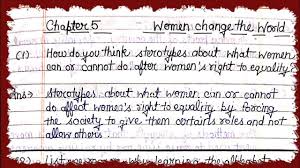 Chapter 5 Women change the World
(1) How do you think sterotypes about what women
can or cannot do after women's right to equality?
Ans) Sterotypes about what women can or cannot
do affect women's right to equality by forcing
the society to give them certains roles and not
allow others.